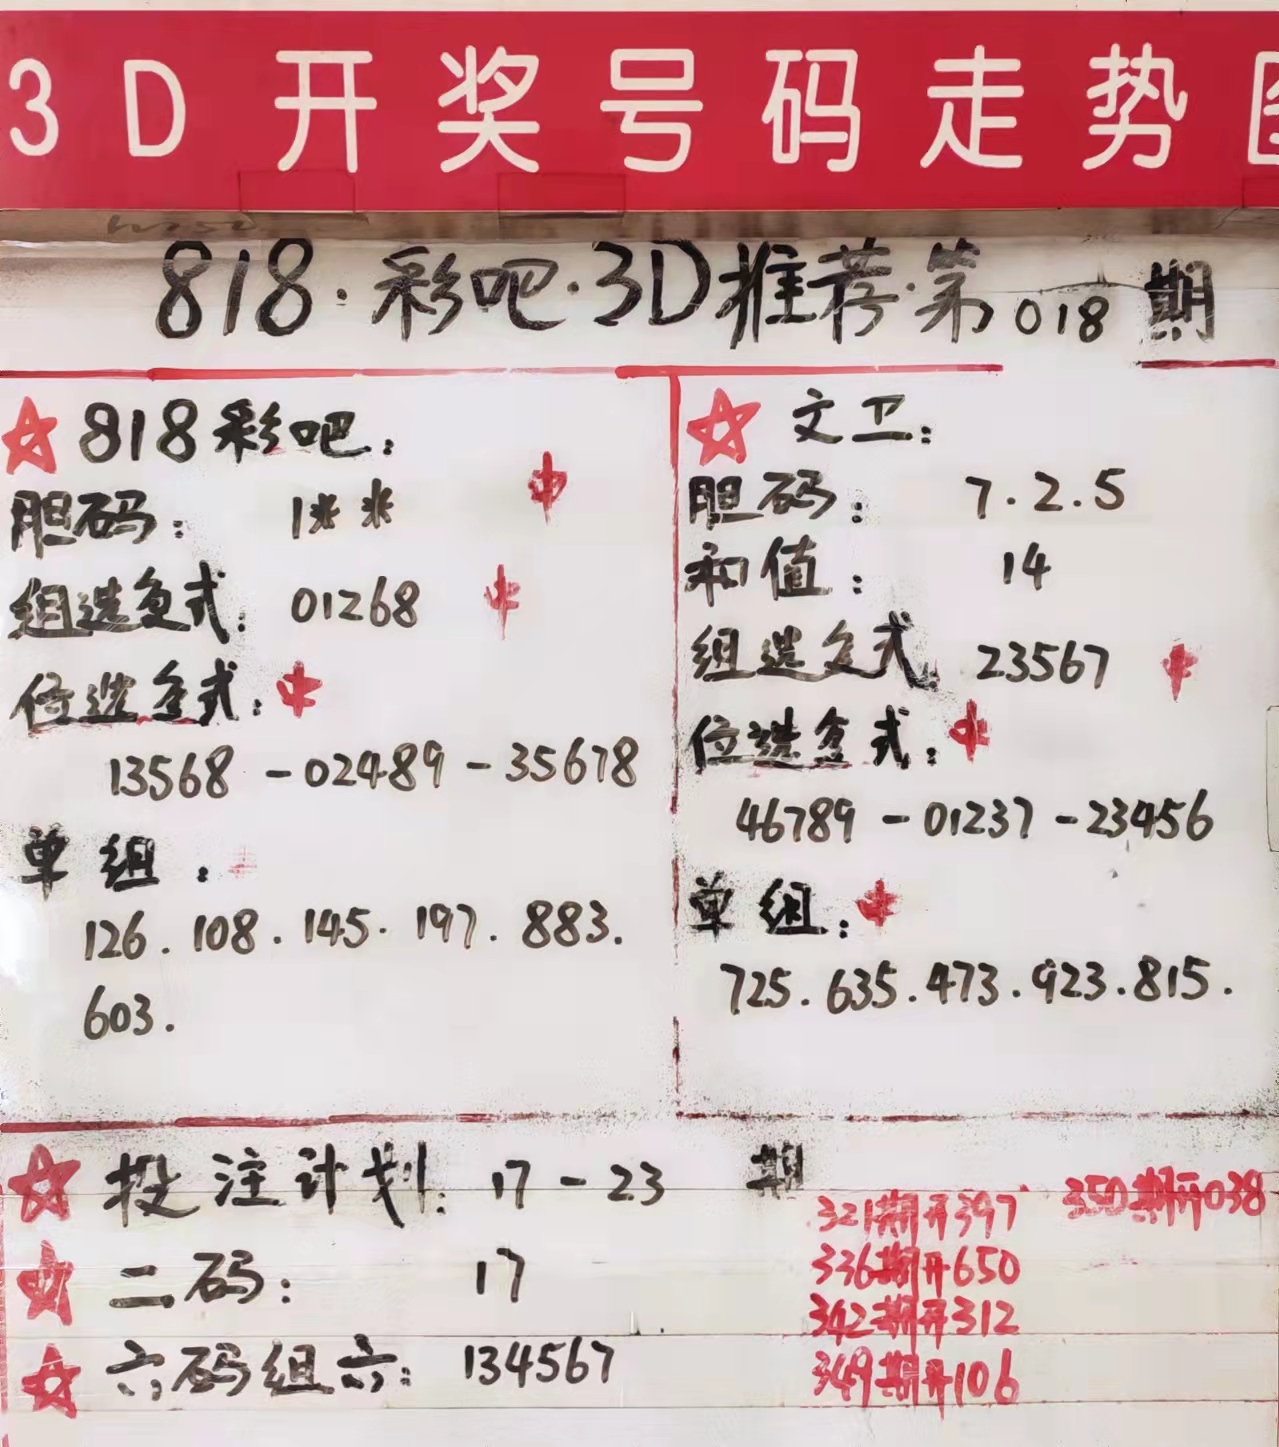 3D开奖号码走势图
818·彩吧·3D推荐·第018期
☆818彩吧:
胆码: 1** 中
组选复式: 01268 中
位选复式: 中
13568-02489-35678
单组: 中
126.108.145.197.883.
603.
☆文卫:
胆码: 7.2.5
和值: 14
组选复式: 23567 中
位选复式: 中
46789-01237-23456
单组: 中
725.635.473.923.815.
☆投注计划: 17-23 期
☆二码: 17
☆六码组六: 134567
321期开397
336期开650
342期开312
349期开106
350期开038